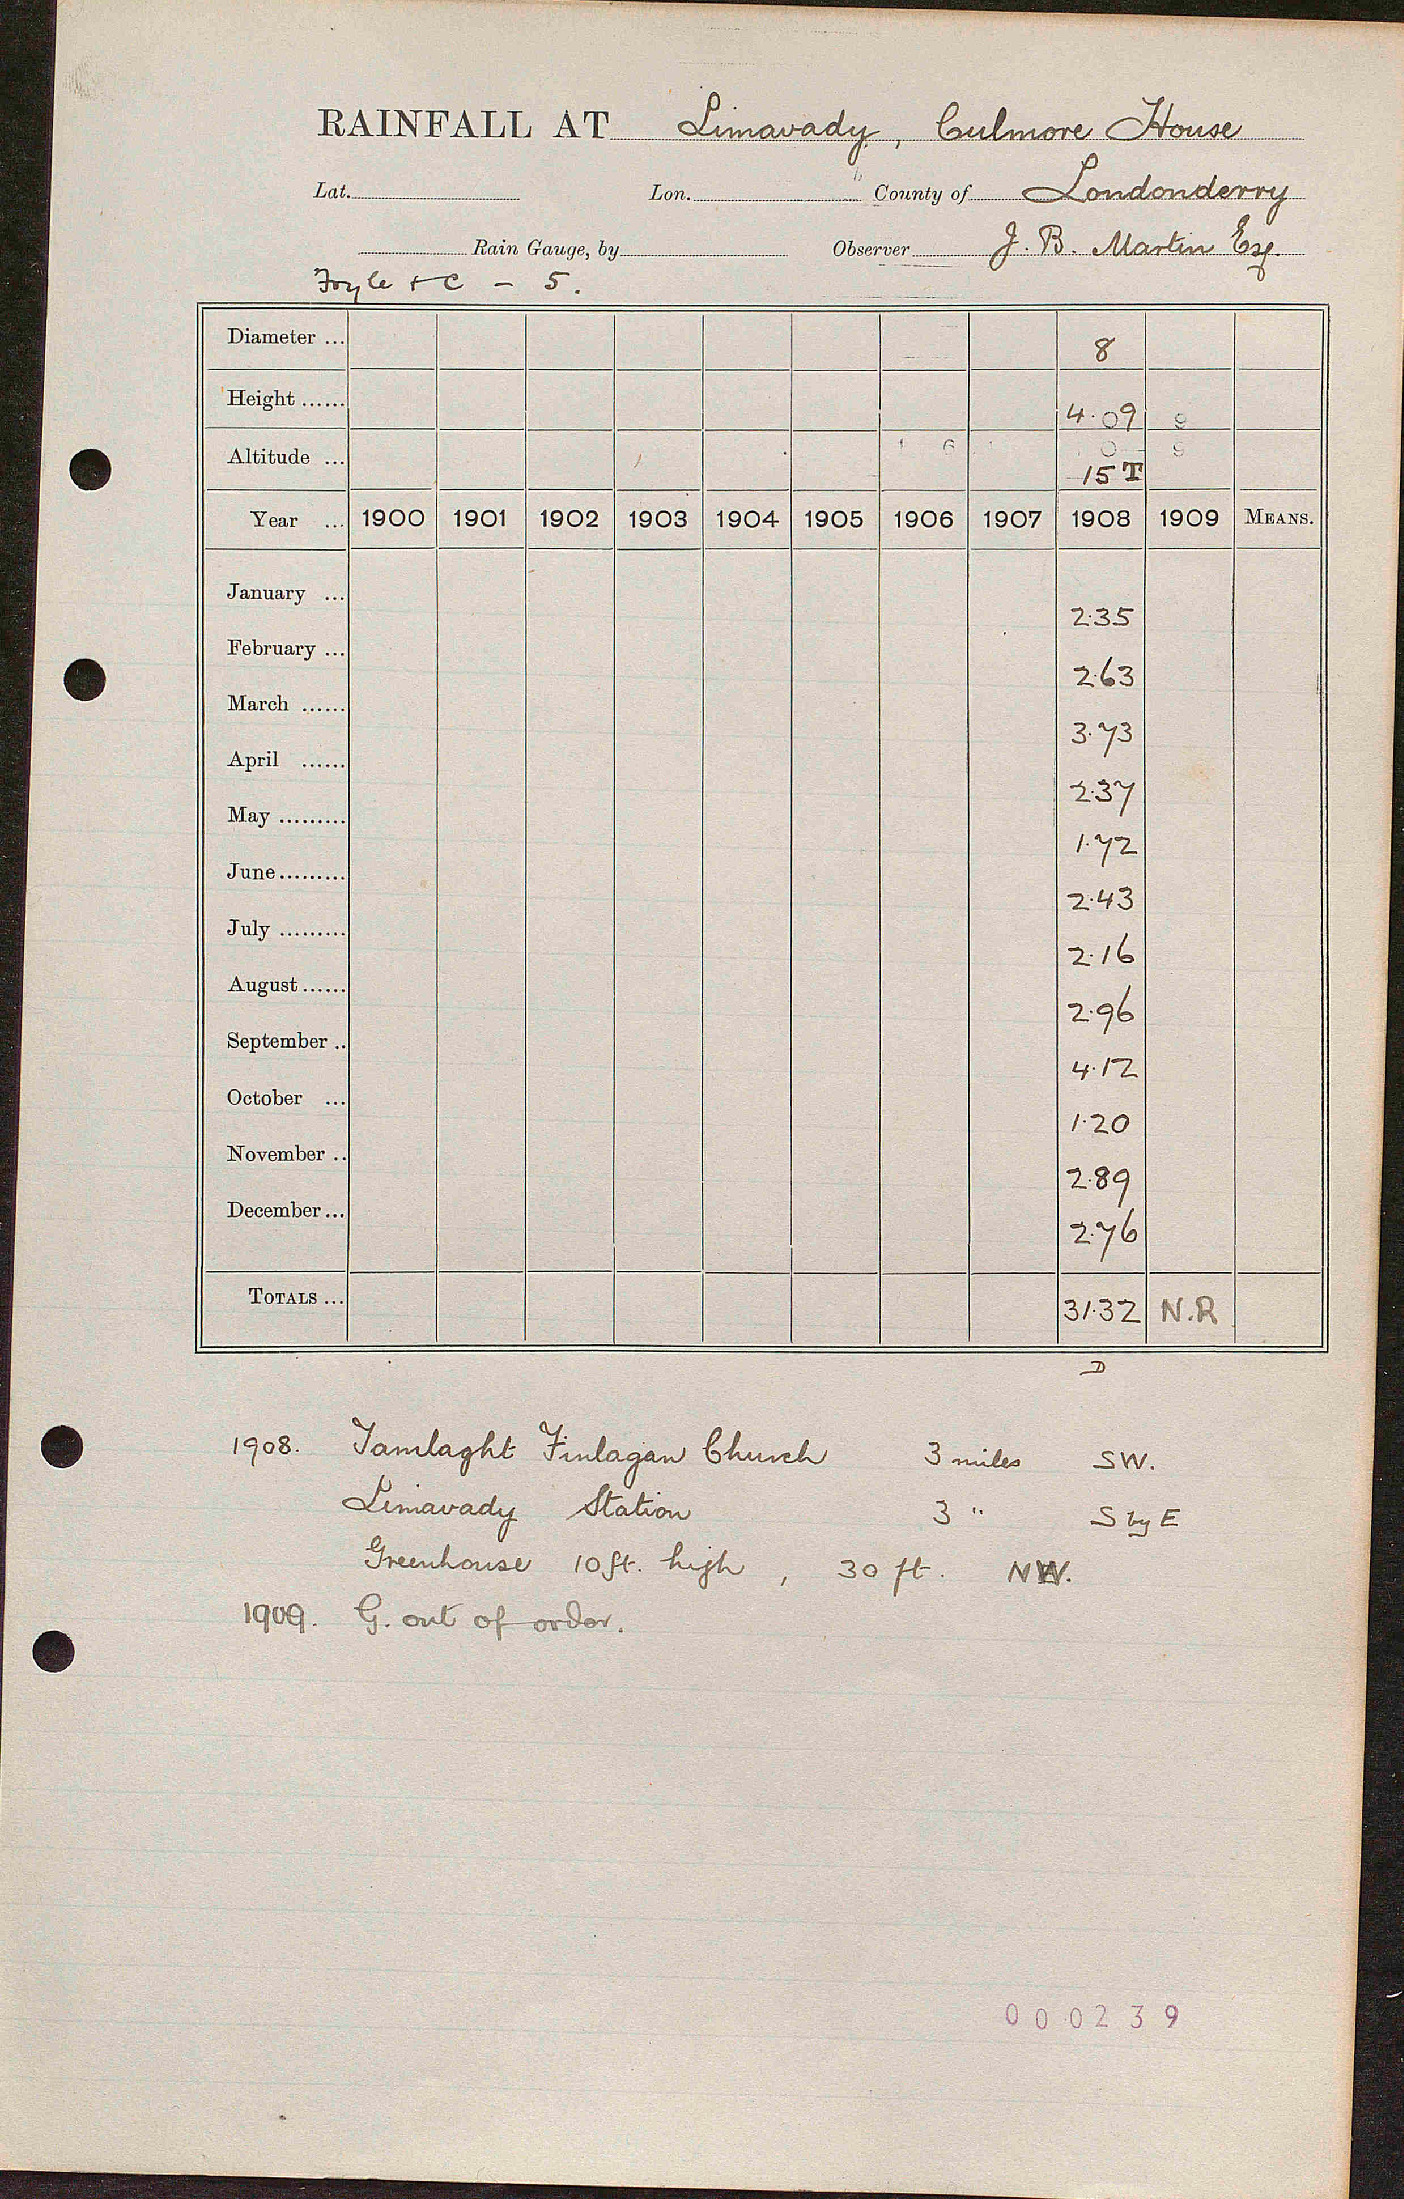 RAINFALL AT Limavady, Culmore House
Lat. Lon. County of Londonderry
Rain Gauge, by Observer J. B. Martin Esq.
Foyle & C - 5.
Diameter ... 8
Height ...... 4.09
Altitude ... 15 T
Year ... 1900 1901 1902 1903 1904 1905 1906 1907 1908 1909 MEANS.
January ... 2.35
February ... 2.63
March ...... 3.73
April ...... 2.37
May ......... 1.72
June......... 2.43
July ......... 2.16
August ...... 2.96
September .. 4.12
October ... 1.20
November .. 2.89
December... 2.76
TOTALS ... 31.32 N.R
D
1908. Tamlaght Finlagan Church 3 miles SW.
Limavady Station 3 " S by E
Greenhouse 10 ft. high, 30 ft. NW.
1909. G. out of order.
000239